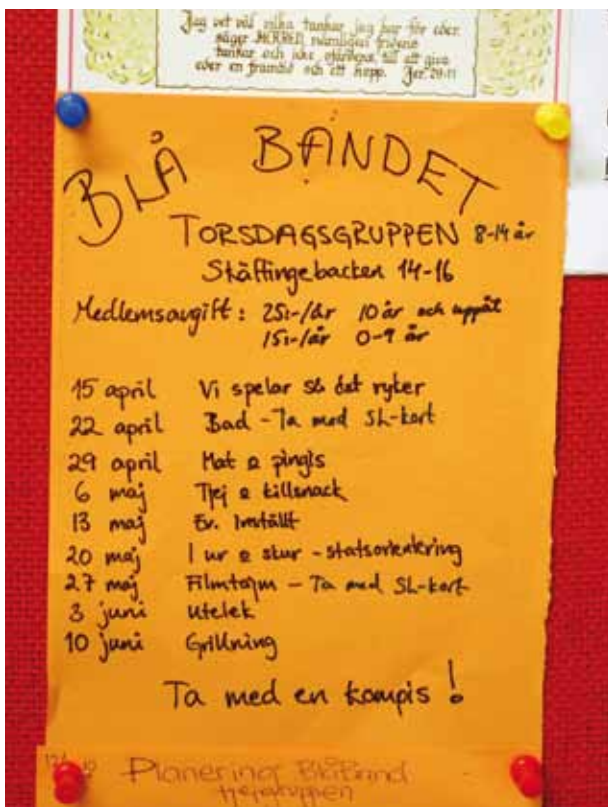 Jag vet väl vilka tankar jag har för eder,
säger HERREN, nämligen fridens
tankar och icke ofärdens, till att giva
eder en framtid och ett hopp. Jer. 29:11
BLÅ BANDET
TORSDAGSGRUPPEN 8-14 år
Skäftingebacken 14-16
Medlemsavgift: 25:-/år 10 år och uppåt
15:-/år 0-9 år
15 april Vi spelar så det ryker
22 april Bad - Ta med SL-kort
29 april Mat o pingis
6 maj Tjej o killsnack
13 maj Ev. Inställt
20 maj I ur o skur - statsorientering
27 maj - Ta med SL-kort
3 juni Utelek
10 juni Grillning
Ta med en kompis!
Planering Blå Band
tjejgruppen